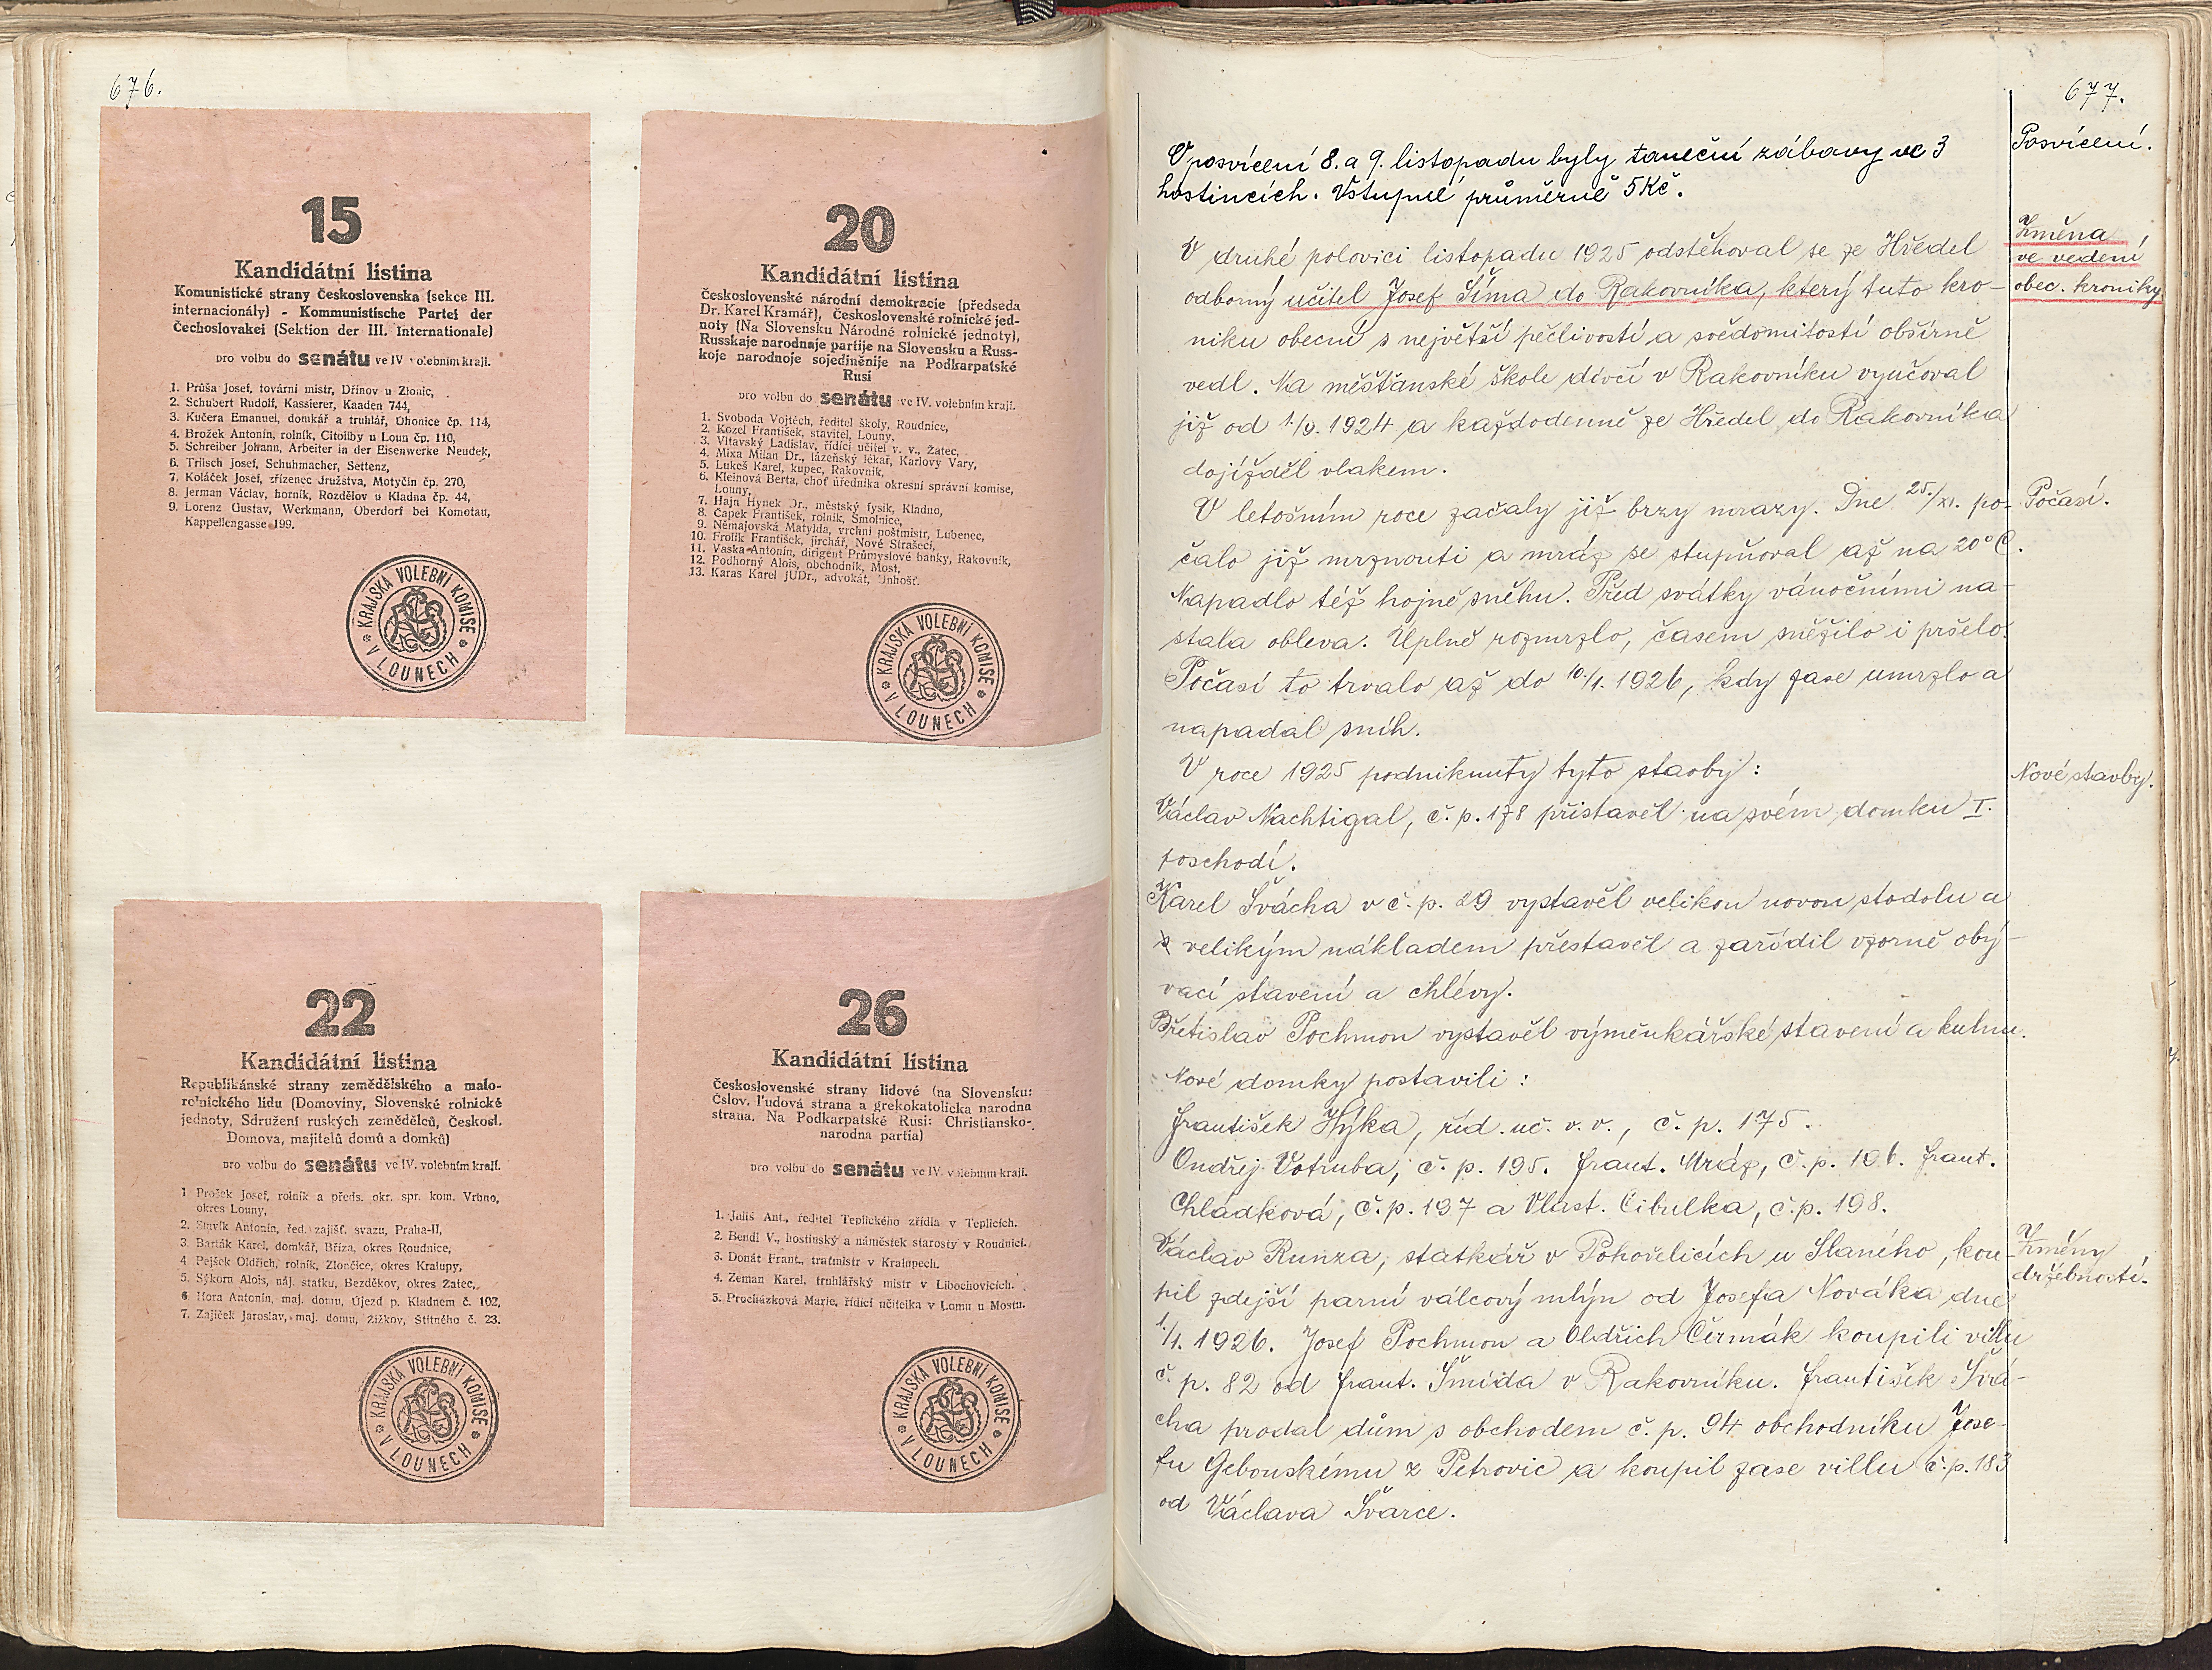 676.
15
Kandidátní listina
Komunistické strany Československa (sekce III.
internacionály) - Kommunistische Partei der
Čechoslovakei (Sektion der III. Internationale)
pro volbu do senátu ve IV volebním kraji.
1. Průša Josef, tovární mistr, Dřínov u Zlonic,
2. Schubert Rudolf, Kassierer, Kaaden 744,
3. Kučera Emanuel, domkář a truhlář, Úhonice čp. 114,
4. Brožek Antonín, rolník, Citoliby u Loun čp. 110,
5. Schreiber Johann, Arbeiter in der Eisenwerke Neudek,
6. Triisch Josef, Schuhmacher, Settenz,
7. Koláček Josef, zřízenec družstva, Motyčín čp. 270,
8. Jerman Václav, horník, Rozdělov u Kladna čp. 44,
9. Lorenz Gustav, Werkmann, Oberdorf bei Komotau,
Kappellengasse 199.
KRAJSKÁ VOLEBNÍ KOMISE
V LOUNECH
20
Kandidátní listina
Československé národní demokracie (předseda
Dr. Karel Kramář), Československé rolnické jed-
noty (Na Slovensku Národné rolnické jednoty),
Russkaje narodnaje partije na Slovensku a Russ-
koje narodnoje sojediněnije na Podkarpatské
Rusi
pro volbu do senátu ve IV. volebním kraji.
1. Svoboda Vojtěch, ředitel školy, Roudnice,
2. Kozel František, stavitel, Louny,
3. Vltavský Ladislav, řídící učitel v. v., Žatec,
4. Mixa Milan Dr., lázeňský lékař, Karlovy Vary,
5. Lukeš Karel, kupec, Rakovník,
6. Kleinová Berta, choť úředníka okresní správní komise,
Louny,
7. Hajn Hynek Dr., městský fysik, Kladno,
8. Čapek František, rolník, Smolnice,
9. Němajovská Matylda, vrchní poštmistr, Lubenec,
10. Frolík František, jirchář, Nové Strašecí,
11. Vaska Antonín, dirigent Průmyslové banky, Rakovník,
12. Podhorný Alois, obchodník, Most,
13. Karas Karel JUDr., advokát, Unhošť.
KRAJSKÁ VOLEBNÍ KOMISE
V LOUNECH
22
Kandidátní listina
Republikánské strany zemědělského a malo-
rolnického lidu (Domoviny, Slovenské rolnické
jednoty, Sdružení ruských zemědělců, Českosl.
Domova, majitelů domů a domků)
pro volbu do senátu ve IV. volebním kraji.
1 Prošek Josef, rolník a předs. okr. spr. kom. Vrbno,
okres Louny,
2. Slavík Antonín, řed. zajišť. svazu, Praha-II,
3. Barták Karel, domkář, Bříza, okres Roudnice,
4 Pejšek Oldřich, rolník, Zlončice, okres Kralupy,
5. Sýkora Alois, náj. statku, Bezděkov, okres Žatec,
6. Hora Antonín, maj. domu, Újezd p. Kladnem č. 102,
7. Zajíček Jaroslav, maj. domu, Žižkov, Štítného č. 23.
KRAJSKÁ VOLEBNÍ KOMISE
V LOUNECH
26
Kandidátní listina
Československé strany lidové (na Slovensku:
Čslov. ľudová strana a grekokatolicka narodna
strana. Na Podkarpatské Rusi: Christiansko-
narodna partia)
pro volbu do senátu ve IV. volebním kraji.
1. Jiliš Ant., ředitel Teplického zřídla v Teplicích.
2. Bendl V., hostinský a náměstek starosty v Roudnici.
3. Donát Frant., traťmistr v Kralupech.
4. Zeman Karel, truhlářský mistr v Libochovicích.
5. Procházková Marie, řídící učitelka v Lomu u Mostu.
KRAJSKÁ VOLEBNÍ KOMISE
V LOUNECH
677.
Posvícení.
O posvícení 8. a 9. listopadu byly taneční zábavy ve 3
hostincích. Vstupné průměrně 5 Kč.
Změna
ve vedení
obec. kroniky
V druhé polovici listopadu 1925 odstěhoval se ze Hředel
odborný učitel Josef Šíma do Rakovníka, který tuto kro-
niku obecní s největší pečlivostí a svědomitostí obšírně
vedl. Na měšťanské škole dívčí v Rakovníku vyučoval
již od 1./9. 1924 a každodenně ze Hředel do Rakovníka
dojížděl vlakem.
Počasí.
V letošním roce začaly již brzy mrazy. Dne 25./XI. po-
čalo již mrznouti a mráz se stupňoval až na 20° C.
Napadlo též hojně sněhu. Před svátky vánočními na-
stala obleva. Úplně rozmrzlo, časem sněžilo i pršelo.
Počasí to trvalo až do 10./1. 1926, kdy zase umrzlo a
napadal sníh.
Nové stavby.
V roce 1925 podniknuty tyto stavby:
Václav Nachtigal, č. p. 178 přistavěl na svém domku I.
poschodí.
Karel Švácha v č. p. 29 vystavěl velikou novou stodolu a
s velikým nákladem přestavěl a zařídil vzorně obý-
vací stavení a chlévy.
Břetislav Pochmon vystavěl výměnkářské stavení a kulnu.
Nové domky postavili:
František Hýka, říd. uč. v. v., č. p. 175.
Ondřej Votruba, č. p. 195. Frant. Mráz, č. p. 196. Frant.
Chládková, č. p. 197 a Vlast. Cibulka, č. p. 198.
Změny
držebností.
Václav Runza, statkář v Pohořelicích u Slaného, kou-
pil zdejší parní válcový mlýn od Josefa Nováka dne
1./1. 1926. Josef Pochmon a Oldřich Čermák koupili villu
č. p. 82 od Frant. Šmída v Rakovníku. František Švá-
cha prodal dům s obchodem č. p. 94 obchodníku Jose-
fu Gebouskému z Petrovic a koupil zase villu č. p. 183
od Václava Švarce.